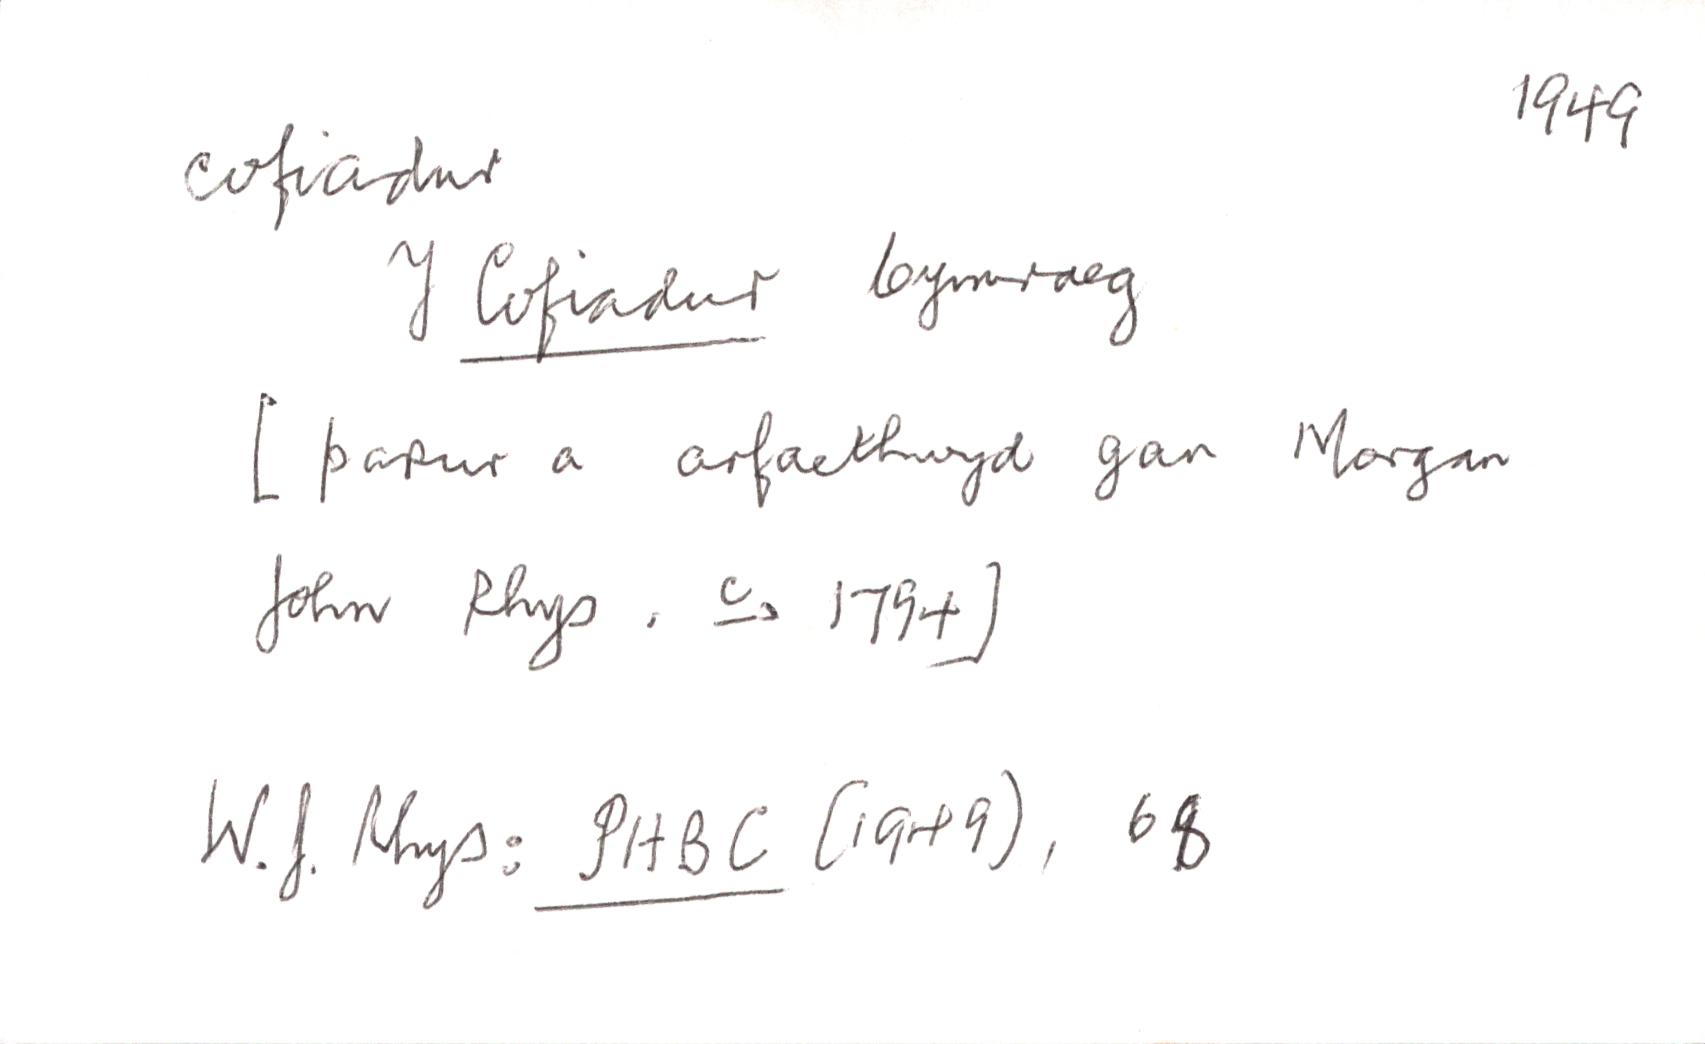 1949
cofiadur
Y Cofiadur Cymraeg
[papur a arfaethwyd gan Morgan
John Rhys, c. 1794]
W.J. Rhys: PHBC (1949), 68